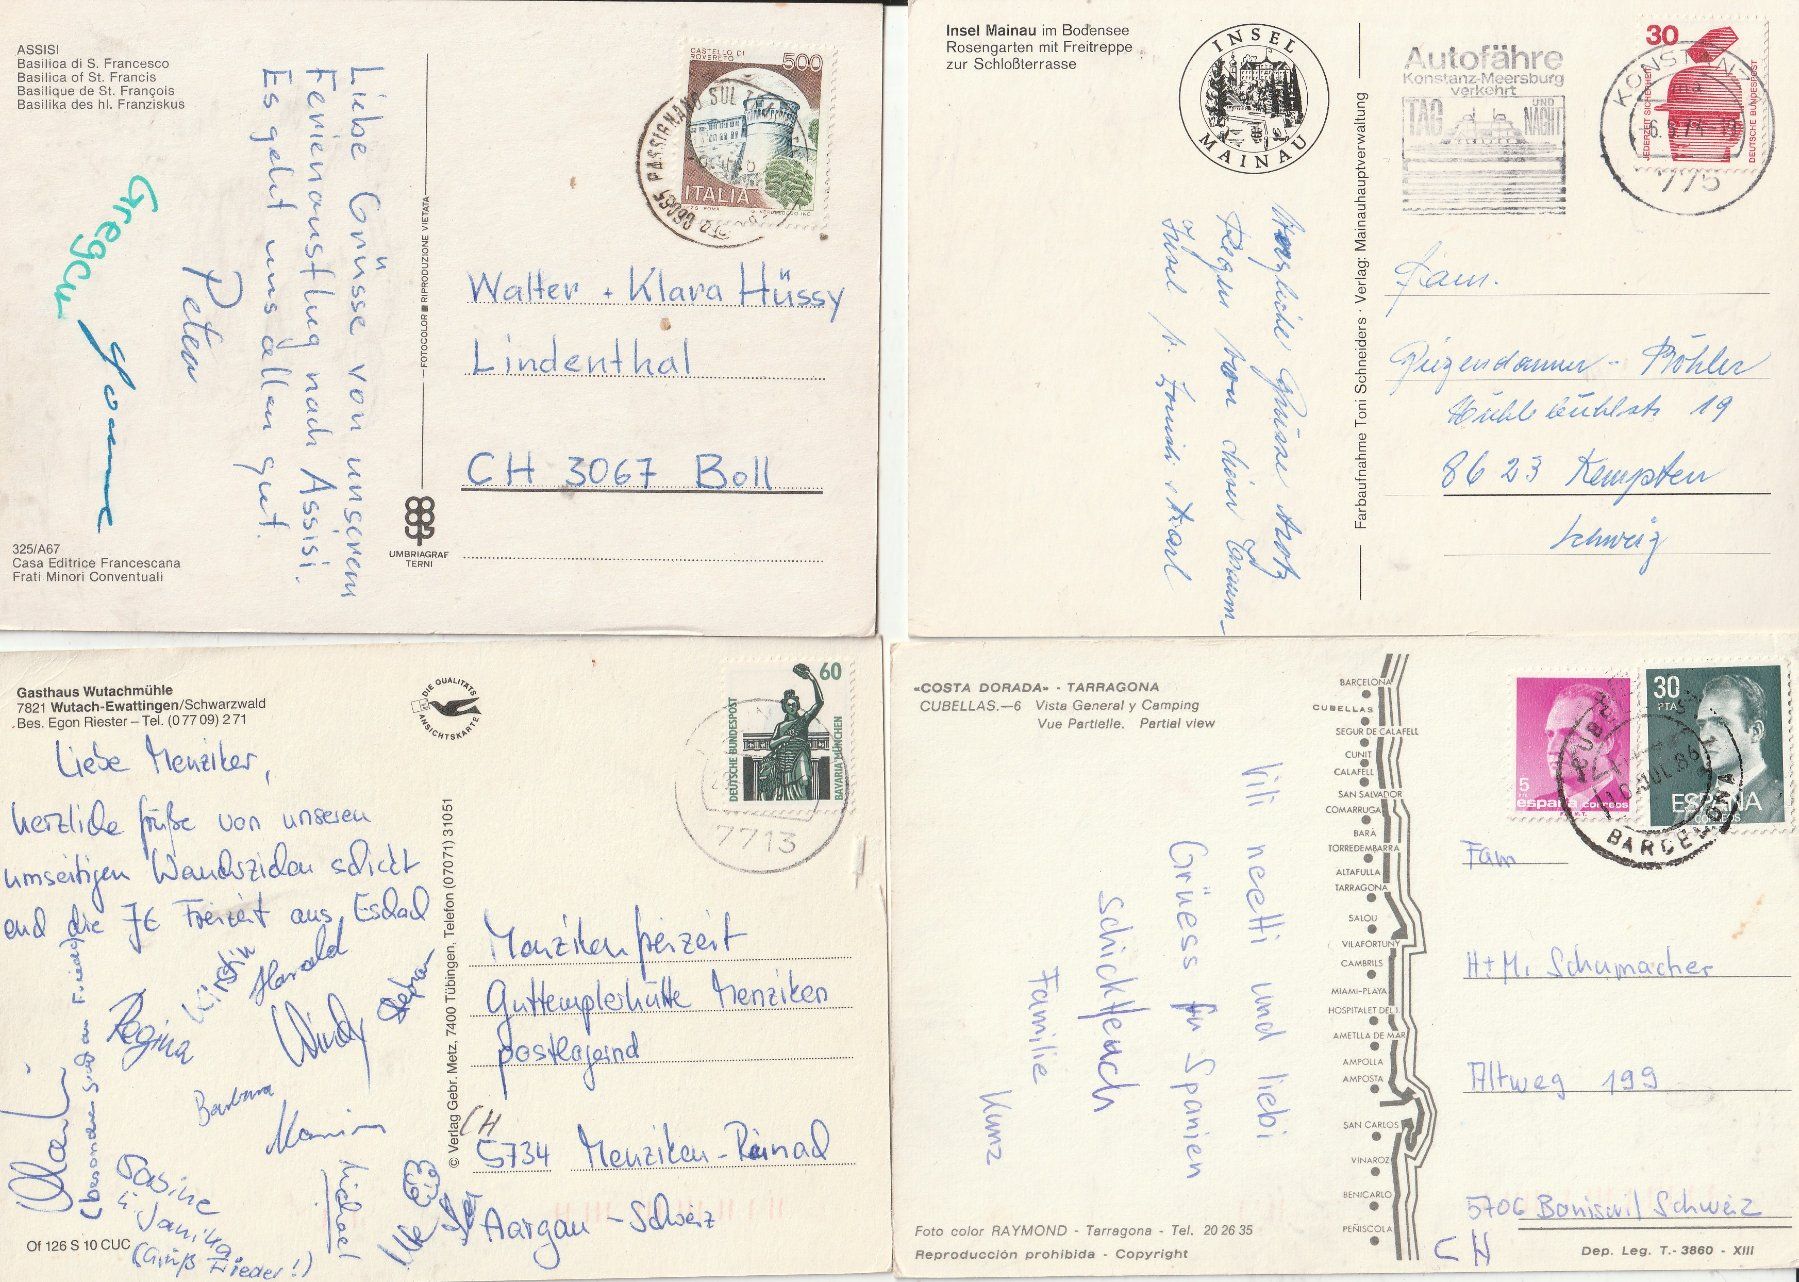 ASSISI
Basilica di S. Francesco
Basilica of St. Francis
Basilique de St. François
Basilika des hl. Franziskus
Liebe Grüsse von unserem
Ferienausflug nach Assisi.
Es geht uns allen gut.
Peter
Gregor
325/A67
Casa Editrice Francescana
Frati Minori Conventuali
FOTOCOLOR RIPRODUZIONE VIETATA
UMBRIAGRAF
TERNI
CASTELLO DI
ROVERETO
500
ITALIA
06065 PASSIGNANO SUL
Walter + Klara Hüssy
Lindenthal
CH 3067 Boll
Insel Mainau im Bodensee
Rosengarten mit Freitreppe
zur Schloßterrasse
INSEL
MAINAU
Herzliche Grüsse trotz
Regen von einem
Insel
Farbaufnahme Toni Schneiders · Verlag: Mainauhauptverwaltung
Autofähre
Konstanz-Meersburg
verkehrt
TAG UND NACHT
30
JEDERZEIT SICHERHEIT
DEUTSCHE BUNDESPOST
KONSTANZ
775
Fam.
Giezendanner - Böhler
Mühlebühlstr 19
8623 Kempten
Schweiz
Gasthaus Wutachmühle
7821 Wutach-Ewattingen/Schwarzwald
Bes. Egon Riester – Tel. (07709) 271
DIE QUALITÄTS
ANSICHTSKARTE
Liebe Menziker,
herzliche Grüße von unseren
umseitigen schickt
euch die Freizeit aus
(besonderen Gruß an Frieder)
Regina
Kirstin
Harald
Windy
Stefan
Barbara
Michael
Sabine
Janika
(Gruß Frieder!)
Of 126 S 10 CUC
© Verlag Gebr. Metz, 7400 Tübingen, Telefon (07071) 31051
60
DEUTSCHE BUNDESPOST
BAVARIA MÜNCHEN
7713
Menzikenfreizeit
Guttemplerhütte Menziken
postlagernd
CH
5734 Menziken-Reinach
Aargau - Schweiz
«COSTA DORADA» - TARRAGONA
CUBELLAS.—6 Vista General y Camping
Vue Partielle. Partial view
Vili neetti und liebi
Grüess fu Spanien
schickt euch
Familie
Kunz
Foto color RAYMOND - Tarragona - Tel. 20 26 35
Reproducción prohibida - Copyright
BARCELONA
CUBELLAS
SEGUR DE CALAFELL
CUNIT
CALAFELL
SAN SALVADOR
COMARRUGA
BARÁ
TORREDEMBARRA
ALTAFULLA
TARRAGONA
SALOU
VILAFORTUNY
CAMBRILS
MIAMI-PLAYA
HOSPITALET DEL I.
AMETLLA DE MAR
AMPOLLA
AMPOSTA
SAN CARLOS
VINAROZ
BENICARLO
PEÑISCOLA
5
españa correos
30
PTA
ESPAÑA
CORREOS
JUL. 86
BARCELONA
Fam
H+M. Schumacher
Altweg 199
5706 Boniswil Schweiz
CH
Dep. Leg. T.- 3860 - XIII